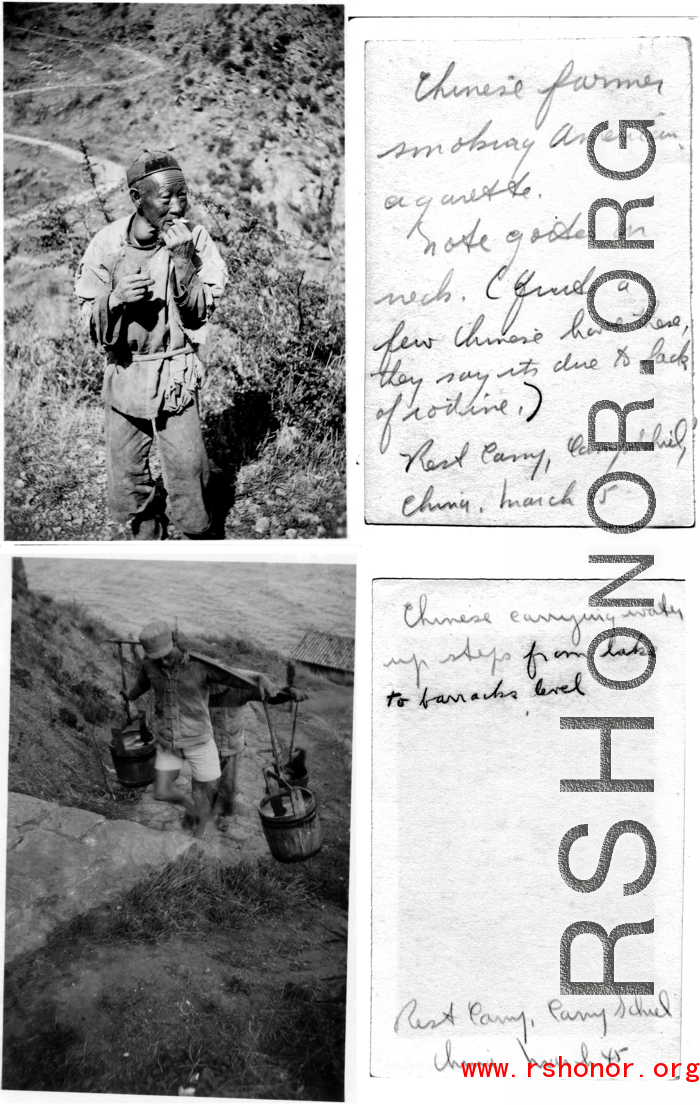 Chinese farmer
smoking American
cigarette.
Note goiter on
neck. (Quite a
few Chinese have these,
they say its due to lack
of iodine.)
Rest Camp, Camp Schiel,
China. March 45
Chinese carrying water
up steps from lake
to barracks level
Rest Camp, Camp Schiel
China March 45
RSHONOR.ORG
www.rshonor.org